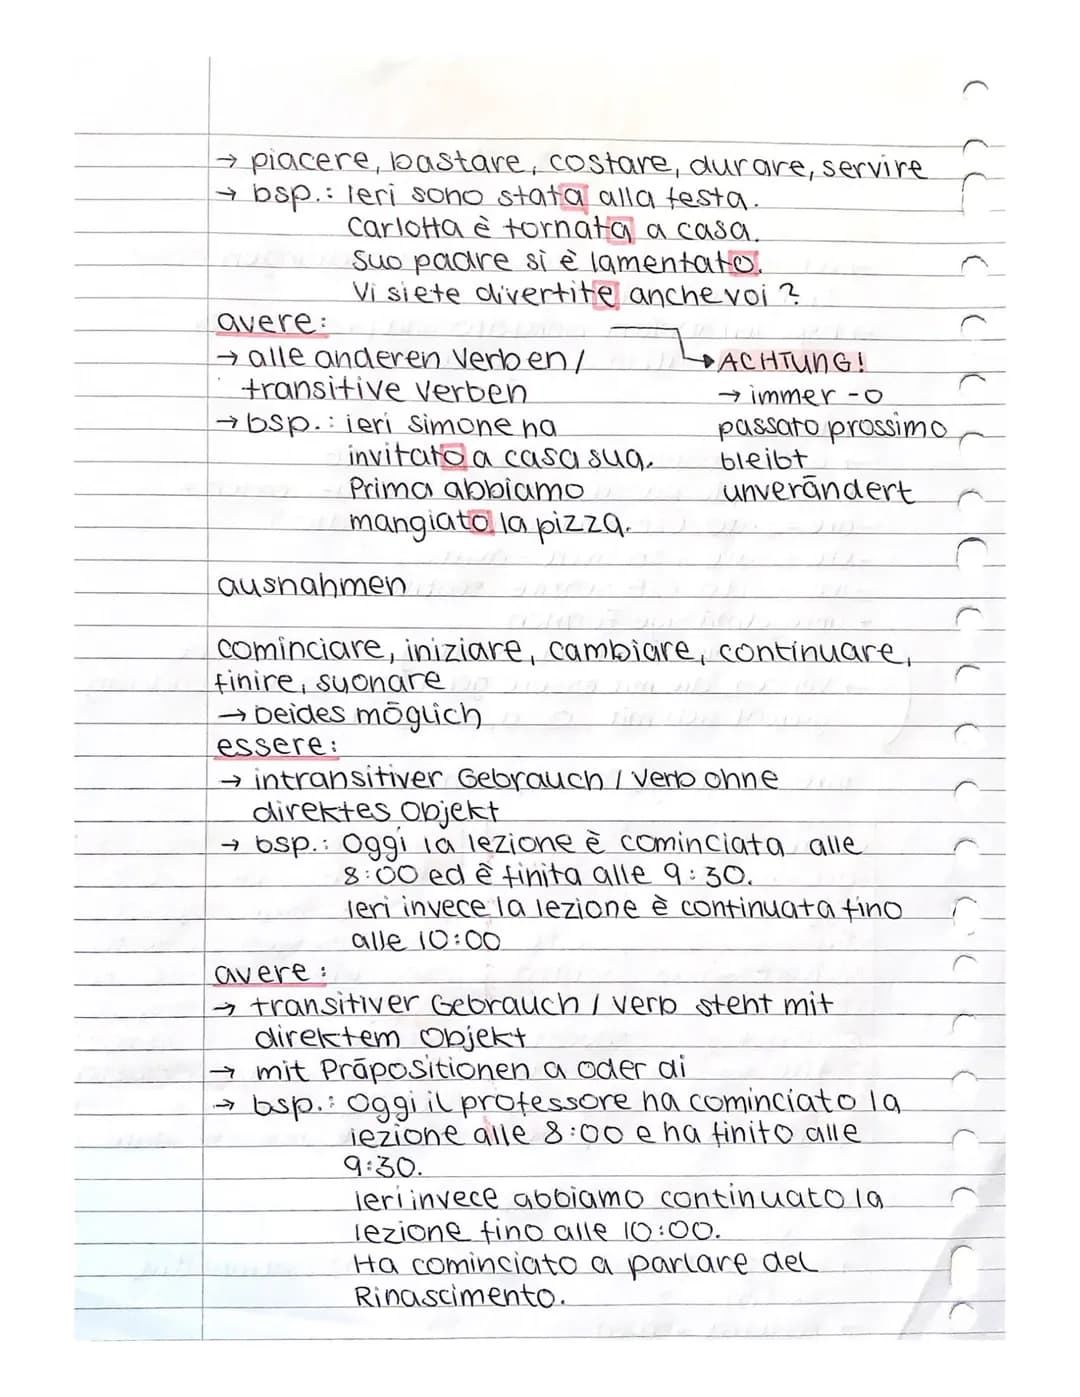 → piacere, bastare, costare, durare, servire
→ bsp.: Ieri sono stata alla festa.
Carlotta è tornata a casa.
Suo padre si è lamentato.
Vi siete divertite anche voi?
avere:
→ alle anderen Verben /
transitive Verben
→ bsp.: ieri Simone ha
invitato a casa sua.
Prima abbiamo
mangiato la pizza.
→ ACHTUNG!
→ immer -o
passato prossimo
bleibt
unverändert
ausnahmen
cominciare, iniziare, cambiare, continuare,
finire, suonare
→ beides möglich
essere:
→ intransitiver Gebrauch / Verb ohne
direktes Objekt
→ bsp.: Oggi la lezione è cominciata alle
8:00 ed è finita alle 9:30.
Ieri invece la lezione è continuata fino
alle 10:00
avere:
→ transitiver Gebrauch / verb steht mit
direktem Objekt
→ mit Präpositionen a oder di
→ bsp.: Oggi il professore ha cominciato la
lezione alle 8:00 e ha finito alle
9:30.
Ieri invece abbiamo continuato la
lezione fino alle 10:00.
Ha cominciato a parlare del
Rinascimento.